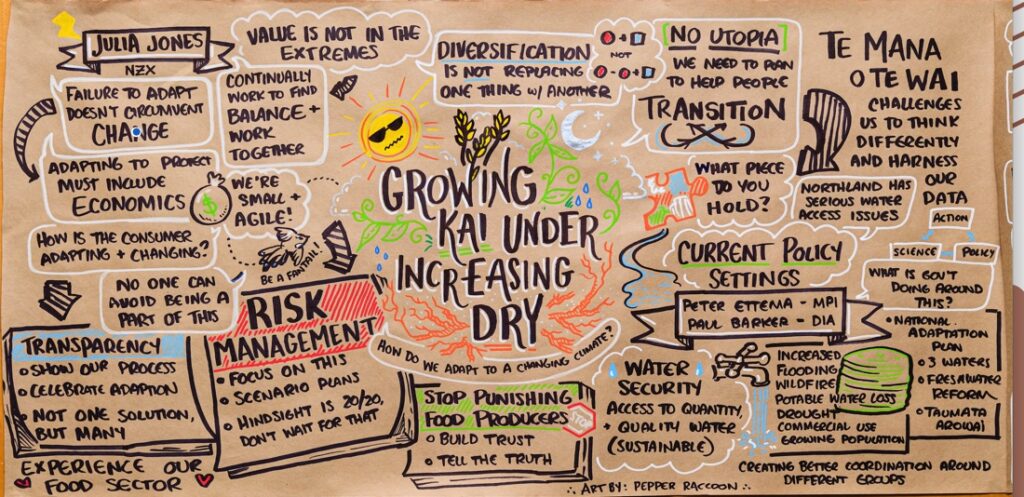 JULIA JONES
NZX
VALUE IS NOT IN THE
EXTREMES
FAILURE TO ADAPT
DOESN'T CIRCUMVENT
CHANGE
CONTINUALLY
WORK TO FIND
BALANCE +
WORK
TOGETHER
ADAPTING TO PROTECT
MUST INCLUDE
ECONOMICS
$
WE'RE
SMALL +
AGILE!
HOW IS THE CONSUMER
ADAPTING + CHANGING?
BE A FANTAIL!
NO ONE CAN
AVOID BEING A
PART OF THIS
TRANSPARENCY
SHOW OUR PROCESS
CELEBRATE ADAPTION
NOT ONE SOLUTION,
BUT MANY
EXPERIENCE OUR
FOOD SECTOR
RISK
MANAGEMENT
FOCUS ON THIS
SCENARIO PLANS
HINDSIGHT IS 20/20,
DON'T WAIT FOR THAT
DIVERSIFICATION
IS NOT REPLACING
ONE THING W/ ANOTHER
NOT
GROWING
KAI UNDER
INCREASING
DRY
HOW DO WE ADAPT TO A CHANGING CLIMATE?
STOP PUNISHING
FOOD PRODUCERS
STOP
BUILD TRUST
TELL THE TRUTH
[NO UTOPIA]
WE NEED TO PLAN
TO HELP PEOPLE
TRANSITION
WHAT PIECE
DO YOU
HOLD?
TE MANA
O TE WAI
CHALLENGES
US TO THINK
DIFFERENTLY
AND HARNESS
OUR
DATA
NORTHLAND HAS
SERIOUS WATER
ACCESS ISSUES
ACTION
SCIENCE
POLICY
CURRENT POLICY
SETTINGS
PETER ETTEMA - MPI
PAUL BARKER - DIA
WHAT IS GOV'T
DOING AROUND
THIS?
NATIONAL
ADAPTATION
PLAN
3 WATERS
FRESHWATER
REFORM
TAUMATA
AROWAI
WATER
SECURITY
ACCESS TO QUANTITY,
+ QUALITY WATER
(SUSTAINABLE)
INCREASED
FLOODING
WILDFIRE
POTABLE WATER LOSS
DROUGHT
COMMERCIAL USE
GROWING POPULATION
CREATING BETTER COORDINATION AROUND
DIFFERENT GROUPS
ART BY: PEPPER RACCOON